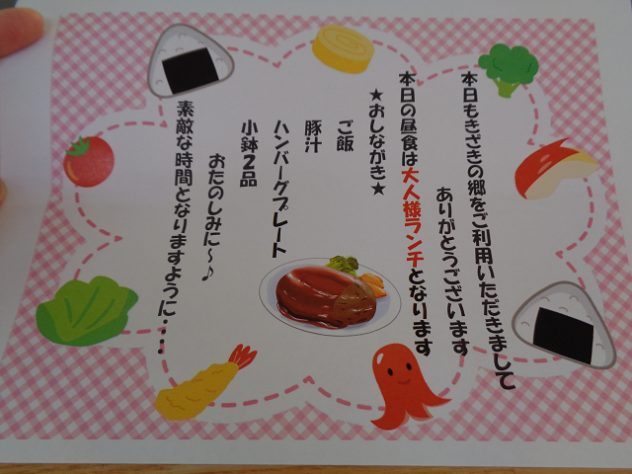 本日もきざきの郷をご利用いただきまして
ありがとうございます
本日の昼食は大人様ランチとなります
★おしながき★
ご飯
豚汁
ハンバーグプレート
小鉢2品
おたのしみに～♪
素敵な時間となりますように・・・